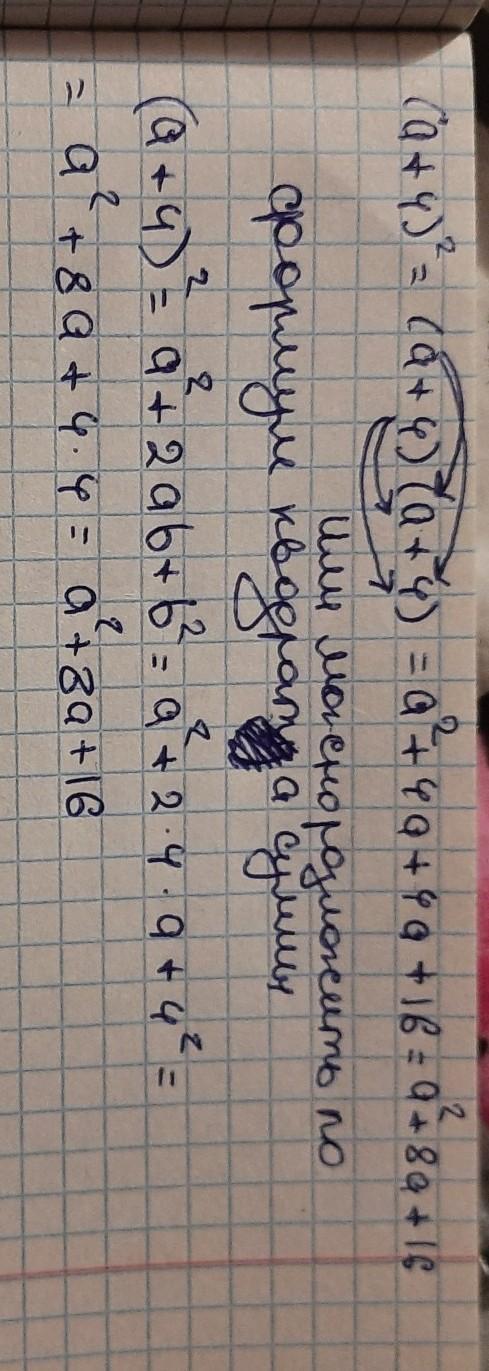 (a+4)² = (a+4)(a+4) = a²+4a+4a+16 = a²+8a+16
или можно разложить по
формуле квадрата суммы
(a+4)² = a²+2ab+b² = a²+2·4·a+4² =
= a²+8a+4·4 = a²+8a+16